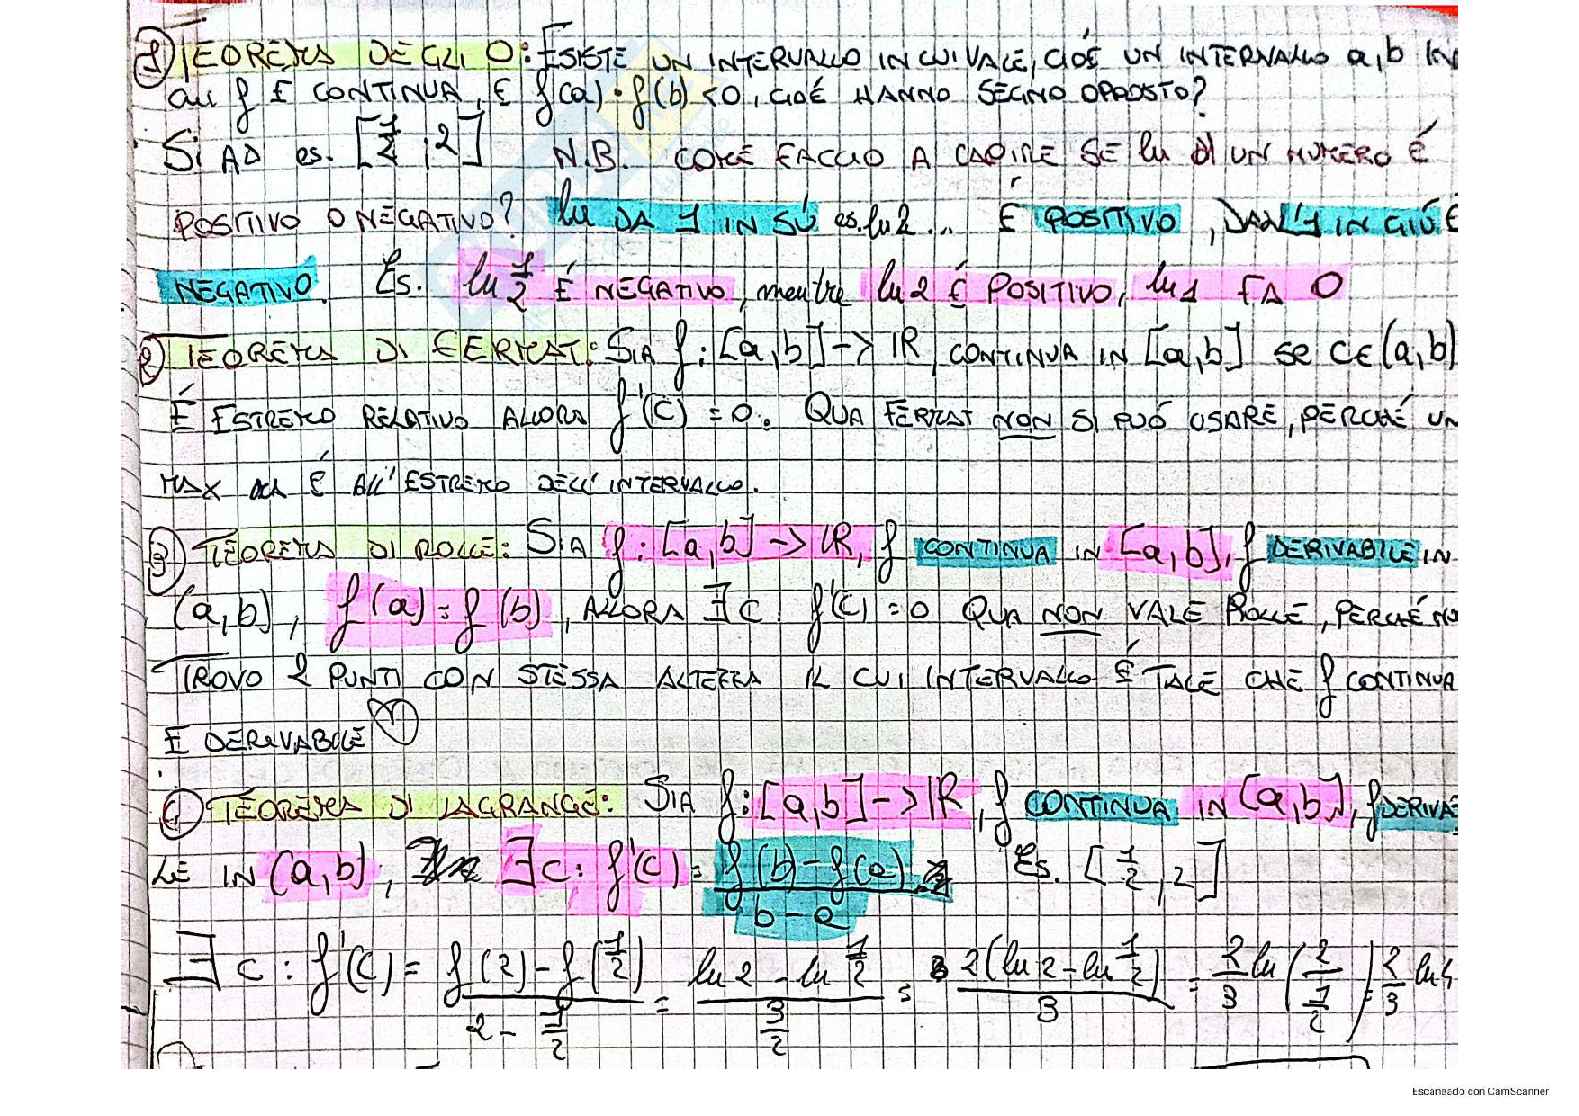 1) TEOREMA DEGLI 0: ESISTE UN INTERVALLO IN CUI VALE, CIOÉ UN INTERVALLO a,b IN
CUI f E CONTINUA, E f(a)·f(b)<0, CIOÉ HANNO SEGNO OPPOSTO?
SI AD es. [1/2, 2] N.B. COME FACCIO A CAPIRE SE ln DI UN NUMERO É
POSITIVO O NEGATIVO? ln DA 1 IN SÚ es. ln2... É POSITIVO, DALL'1 IN GIÚ E
NEGATIVO. Es. ln 1/2 É NEGATIVO, mentre ln 2 É POSITIVO, ln1 FA 0
2) TEOREMA DI FERMAT: SIA f: [a,b] -> IR, CONTINUA IN [a,b] se C∈(a,b)
É ESTREMO RELATIVO ALLORA f'(C) = 0. QUA FERMAT NON SI PUÓ USARE, PERCHÉ UN
MAX É ALL'ESTREMO DELL'INTERVALLO.
3) TEOREMA DI ROLLE: SIA f: [a,b] -> IR, f CONTINUA IN [a,b], f DERIVABILE IN
(a,b), f(a) = f(b), ALLORA ∃C f'(C) = 0 QUA NON VALE ROLLE, PERCHÉ NO
TROVO 2 PUNTI CON STESSA ALTEZZA IL CUI INTERVALLO É TALE CHE f CONTINUA
E DERIVABILE
4) TEOREMA DI LAGRANGE: SIA f: [a,b] -> IR, f CONTINUA IN [a,b], f DERIVA
LE IN (a,b), ∃C: f'(C) = f(b)-f(a) / b-a Es. [1/2, 2]
∃ C: f'(C) = f(2)-f(1/2) / 2-1/2 = ln2 - ln 1/2 / 3/2 = 2(ln2 - ln 1/2) / 3 = 2/3 ln (2 / 1/2) = 2/3 ln4
Escaneado con CamScanner